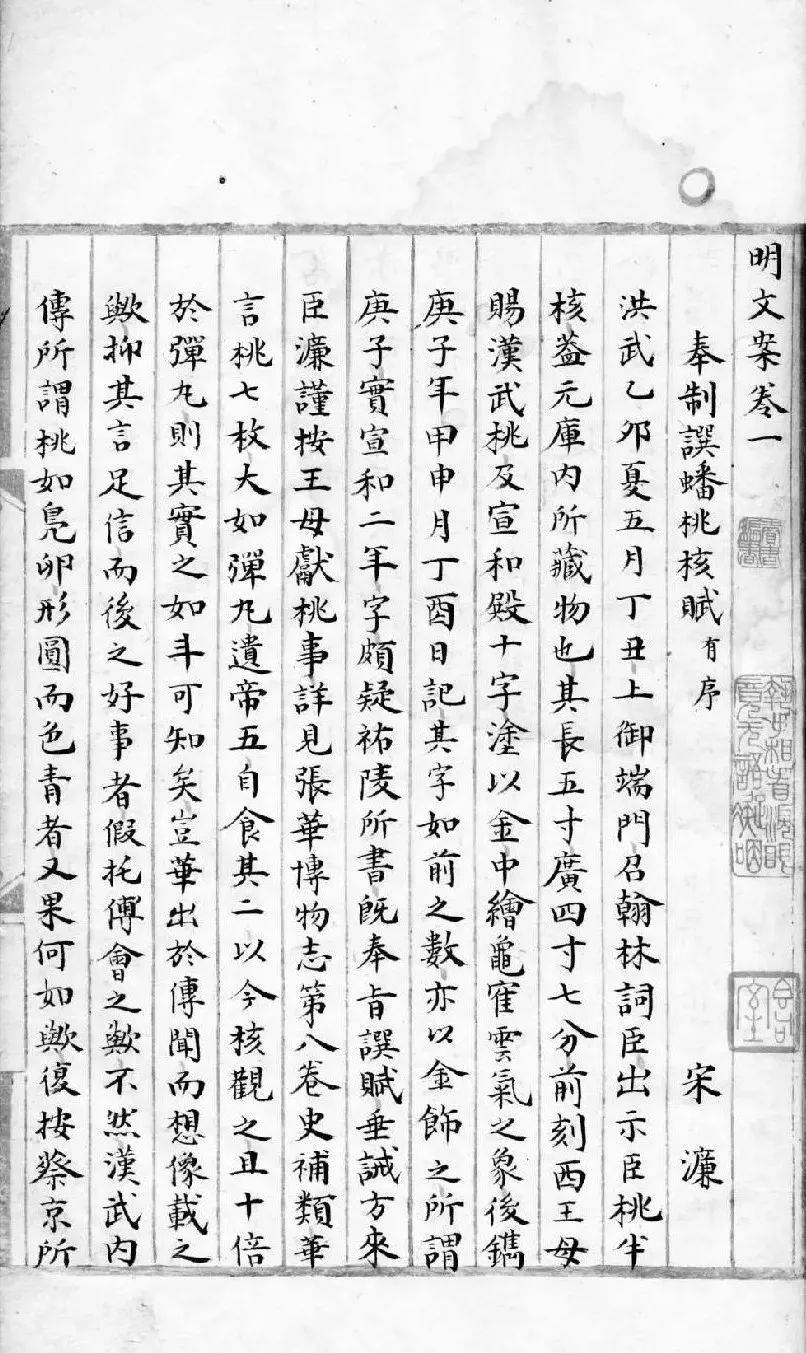 明文案卷一
奉制譔蟠桃核賦有序 宋濂
洪武乙卯夏五月丁丑上御端門召翰林詞臣出示臣桃半
核葢元庫內所藏物也其長五寸廣四寸七分前刻西王母
賜漢武桃及宣和殿十字塗以金中繪龜寉雲氣之象後鐫
庚子年甲申月丁酉日記其字如前之數亦以金飾之所謂
庚子實宣和二年字頗疑祐陵所書旣奉旨譔賦垂誡方來
臣濂謹按王母獻桃事詳見張華博物志第八卷史補類華
言桃七枚大如彈丸遺帝五自食其二以今核觀之且十倍
於彈丸則其實之如斗可知矣豈華出於傳聞而想像載之
歟抑其言足信而後之好事者假托傅會之歟不然漢武內
傳所謂桃如鳧卵形圓而色青者又果何如歟復按蔡京所